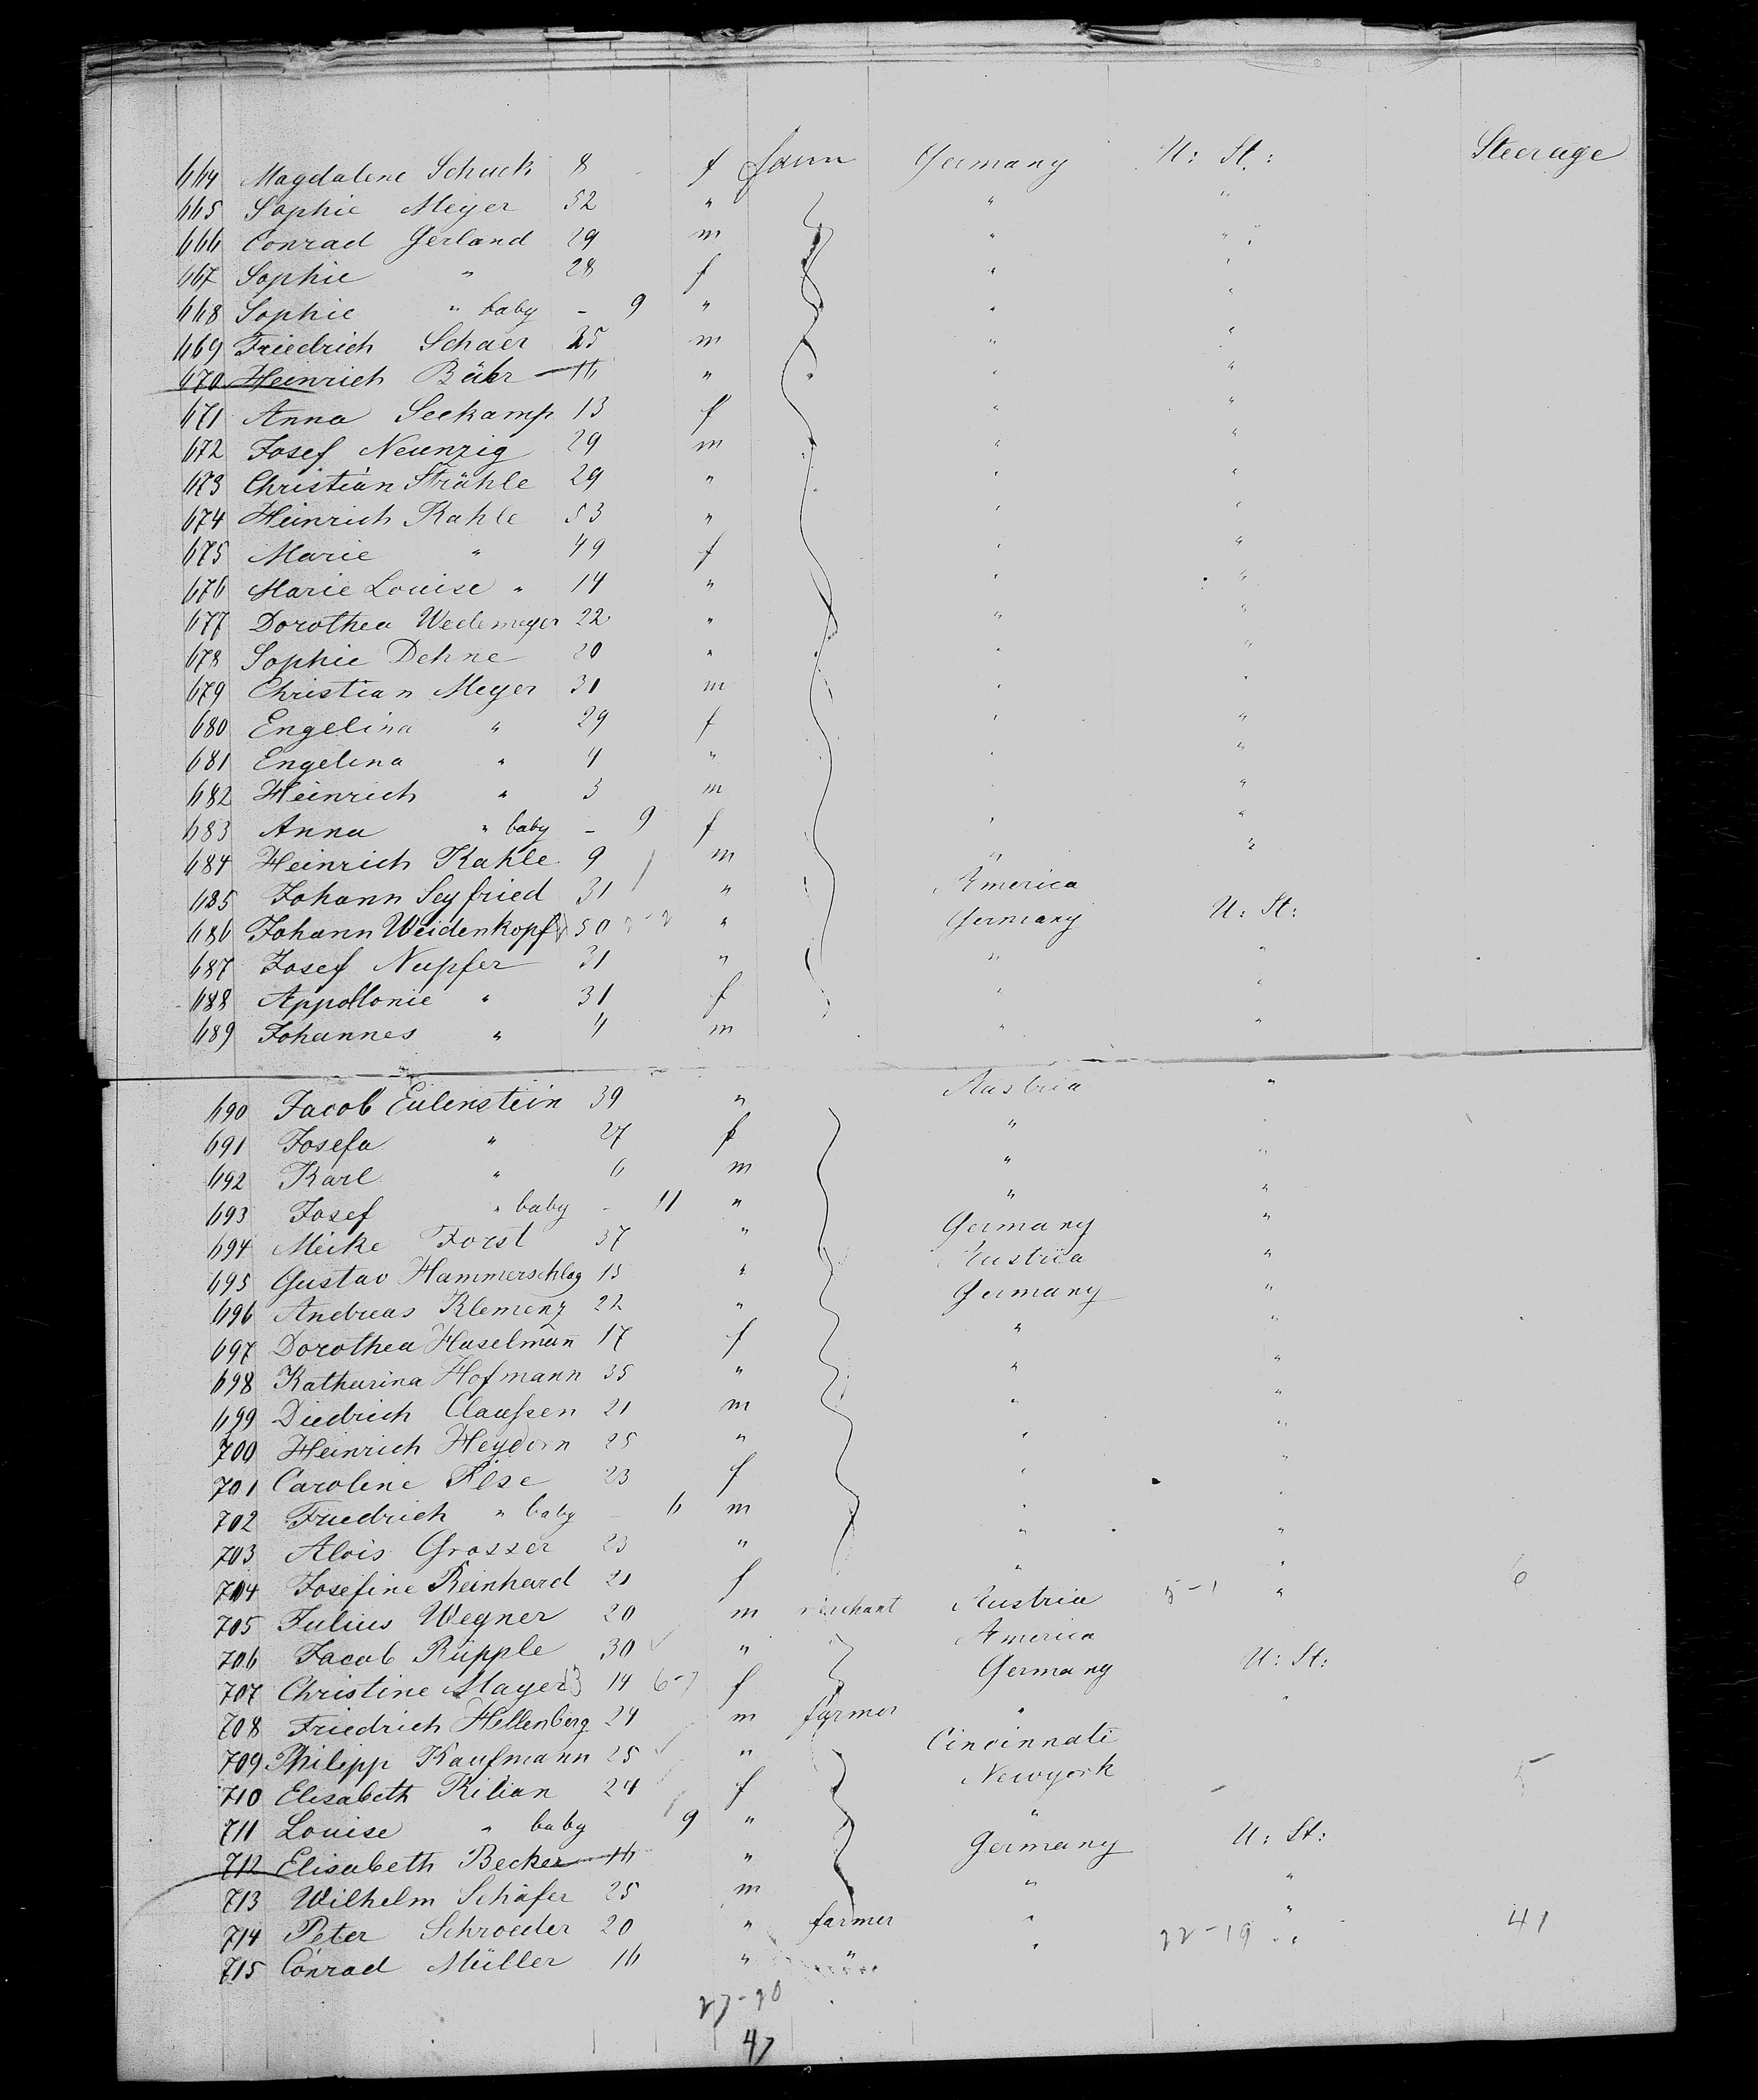 664 Magdalene Schuck 8 f Germany U: St: Steerage
665 Sophie Meyer 52 " " "
666 Conrad Gerland 29 m " "
667 Sophie " 28 f " "
668 Sophie " baby - 9 " " "
669 Friedrich Schaer 25 m " "
670 Heinrich Bähr 16 " " "
671 Anna Seekamp 13 f " "
672 Josef Neunzig 29 m " "
673 Christian Strähle 29 " " "
674 Heinrich Kahle 53 " " "
675 Marie " 49 f " "
676 Marie Louise " 14 " " "
677 Dorothea Wedemeyer 22 " " "
678 Sophie Dehne 20 " " "
679 Christian Meyer 31 m " "
680 Engelina " 29 f " "
681 Engelina " 4 " " "
682 Heinrich " 3 m "
683 Anna " baby - 9 f " "
684 Heinrich Kahle 9 m " "
685 Johann Seyfried 31 " America
686 Johann Weidenkopf 50 " Germany U: St:
687 Josef Nupfer 31 " " "
688 Appollonie " 31 f " "
689 Johannes " 4 m " "
690 Jacob Eulenstein 39 " Austria "
691 Josefa " 27 f " "
692 Karl " 6 m " "
693 Josef " baby - 11 " " "
694 Meike Forst 37 " Germany "
695 Gustav Hammerschlag 15 " Austria "
696 Andreas Klemenz 22 " Germany "
697 Dorothea Haselmann 17 f " "
698 Katharina Hofmann 35 " " "
699 Diedrich Claussen 21 m " "
700 Heinrich Heydorn 25 " " "
701 Caroline Ilse 23 f " "
702 Friedrich " baby - 6 m " "
703 Alois Grosser 23 " " "
704 Josefine Reinhard 21 f " " 6
705 Julius Wegner 20 m Austria 5-1 "
706 Jacob Rüpple 30 " America
707 Christine Mayer 14 f Germany U: St:
708 Friedrich Hellenberg 24 m farmer " "
709 Philipp Kaufmann 25 " Cincinnati
710 Elisabeth Kilian 24 f Newyork
711 Louise " baby 9 " "
712 Elisabeth Becker 16 " Germany U: St:
713 Wilhelm Schäfer 25 m " "
714 Peter Schroeder 20 " farmer " " 41
715 Conrad Müller 16 " " " 22-19 "
27-20
47